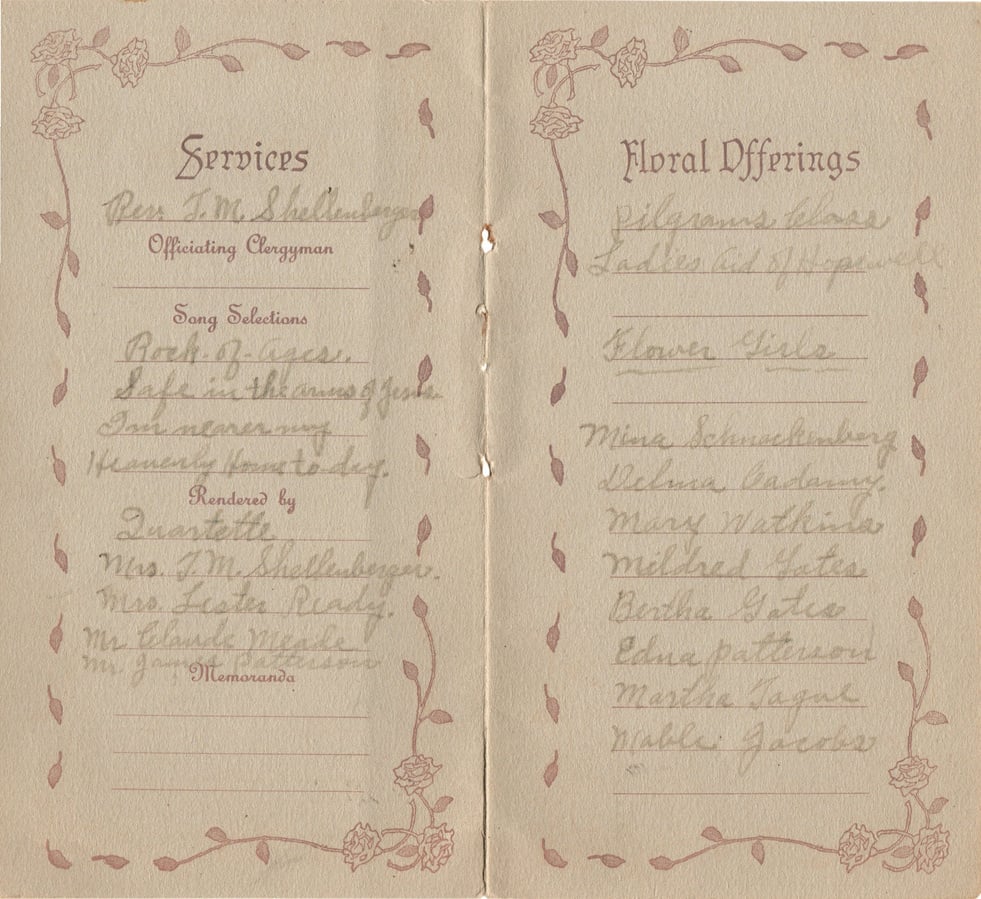 Services
Rev. J. M. Shellenberger
Officiating Clergyman
Song Selections
Rock-of-Ages.
Safe in the arms of Jesus.
I'm nearer my
Heavenly Home to-day.
Rendered by
Quartette
Mrs. J. M. Shellenberger.
Mrs. Lester Ready.
Mr Claude Meade
Mr. James Patterson
Memoranda
Floral Offerings
Pilgrams Class
Ladies Aid of Hopewell
Flower Girls
Mina Schnackenberg
Velma Cadamy.
Mary Watkins
Mildred Gates
Bertha Gates
Edna Patterson
Martha Tague
Mable Jacobs